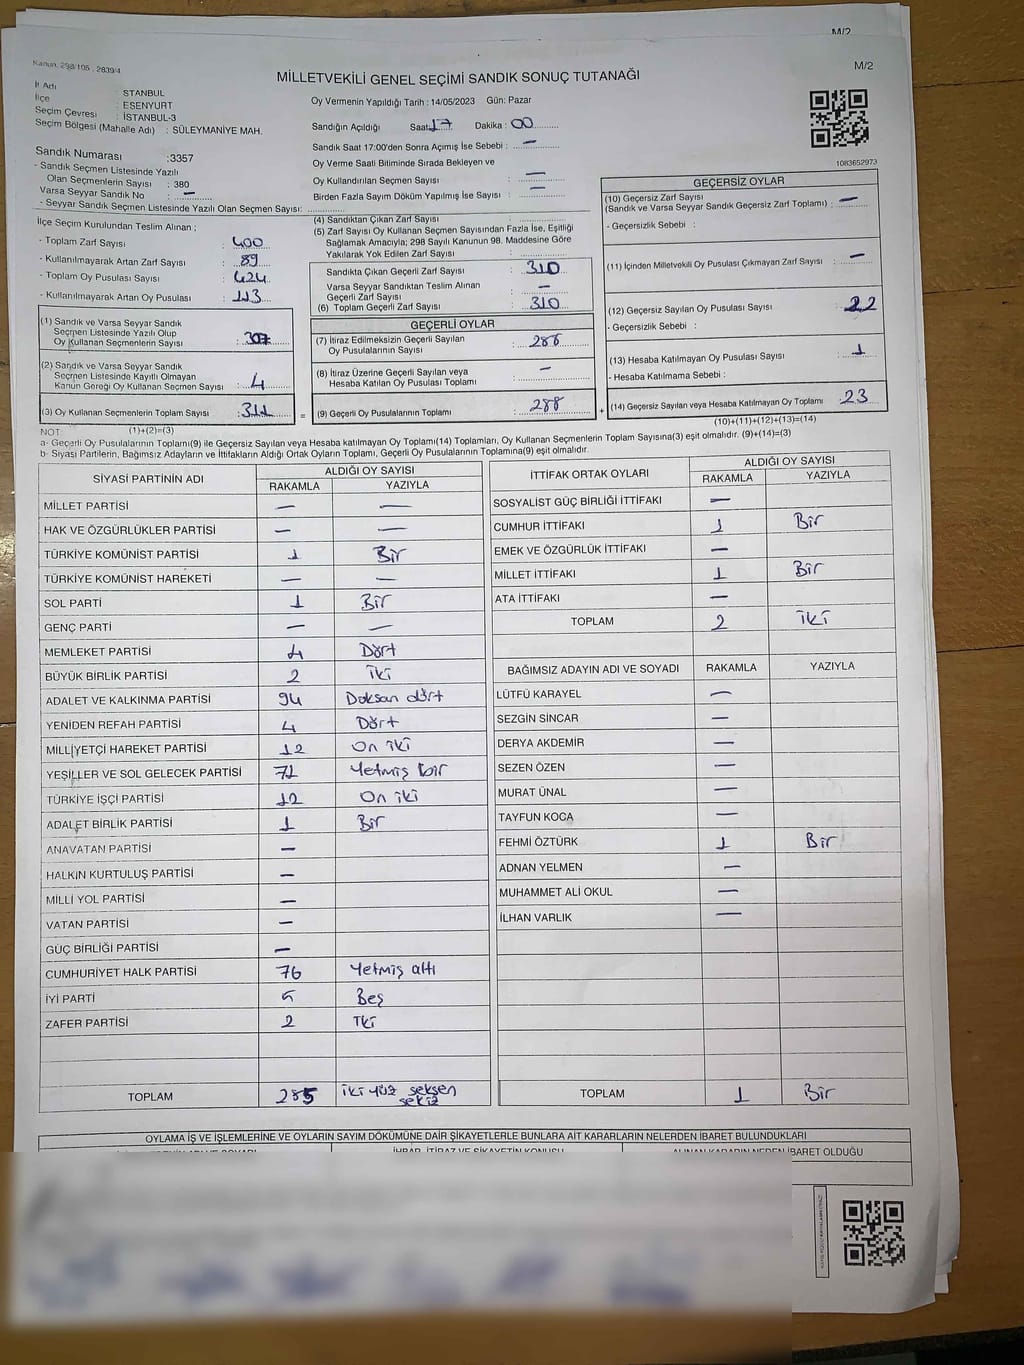 M/2
Kanun, 298/105 , 2839/4
M/2
MİLLETVEKİLİ GENEL SEÇİMİ SANDIK SONUÇ TUTANAĞI
İl Adı : STANBUL
İlçe : ESENYURT
Seçim Çevresi : İSTANBUL-3
Seçim Bölgesi (Mahalle Adı) : SÜLEYMANİYE MAH.
Oy Vermenin Yapıldığı Tarih : 14/05/2023 Gün: Pazar
Sandığın Açıldığı Saat 17 Dakika : 00
Sandık Saat 17:00'den Sonra Açımış İse Sebebi : —
Oy Verme Saati Bitiminde Sırada Bekleyen ve
Oy Kullandırılan Seçmen Sayısı : —
Birden Fazla Sayım Döküm Yapılmış İse Sayısı : —
1083652973
Sandık Numarası :3357
- Sandık Seçmen Listesinde Yazılı
Olan Seçmenlerin Sayısı : 380
Varsa Seyyar Sandık No : —
- Seyyar Sandık Seçmen Listesinde Yazılı Olan Seçmen Sayısı:
İlçe Seçim Kurulundan Teslim Alınan ;
- Toplam Zarf Sayısı : 400
- Kullanılmayarak Artan Zarf Sayısı : 89
- Toplam Oy Pusulası Sayısı : 424
- Kullanılmayarak Artan Oy Pusulası : 113
(1) Sandık ve Varsa Seyyar Sandık
Seçmen Listesinde Yazılı Olup
Oy Kullanan Seçmenlerin Sayısı : 307
(2) Sandık ve Varsa Seyyar Sandık
Seçmen Listesinde Kayıtlı Olmayan
Kanun Gereği Oy Kullanan Seçmen Sayısı : 4
(3) Oy Kullanan Seçmenlerin Toplam Sayısı : 311
(1)+(2)=(3)
(4) Sandıktan Çıkan Zarf Sayısı :
(5) Zarf Sayısı Oy Kullanan Seçmen Sayısından Fazla İse, Eşitliği
Sağlamak Amacıyla; 298 Sayılı Kanunun 98. Maddesine Göre
Yakılarak Yok Edilen Zarf Sayısı :
Sandıkta Çıkan Geçerli Zarf Sayısı : 310
Varsa Seyyar Sandıktan Teslim Alınan
Geçerli Zarf Sayısı : —
(6) Toplam Geçerli Zarf Sayısı : 310
GEÇERLİ OYLAR
(7) İtiraz Edilmeksizin Geçerli Sayılan
Oy Pusulalarının Sayısı : 288
(8) İtiraz Üzerine Geçerli Sayılan veya
Hesaba Katılan Oy Pusulası Toplamı : —
= (9) Geçerli Oy Pusulalarının Toplamı : 288
GEÇERSİZ OYLAR
(10) Geçersiz Zarf Sayısı
(Sandık ve Varsa Seyyar Sandık Geçersiz Zarf Toplamı) : —
- Geçersizlik Sebebi :
(11) İçinden Milletvekili Oy Pusulası Çıkmayan Zarf Sayısı : —
(12) Geçersiz Sayılan Oy Pusulası Sayısı : 22
- Geçersizlik Sebebi :
(13) Hesaba Katılmayan Oy Pusulası Sayısı : 1
- Hesaba Katılmama Sebebi :
+ (14) Geçersiz Sayılan veya Hesaba Katılmayan Oy Toplamı : 23
(10)+(11)+(12)+(13)=(14)
NOT
a- Geçerli Oy Pusulalarının Toplamı(9) ile Geçersiz Sayılan veya Hesaba katılmayan Oy Toplamı(14) Toplamları, Oy Kullanan Seçmenlerin Toplam Sayısına(3) eşit olmalıdır. (9)+(14)=(3)
b- Siyasi Partilerin, Bağımsız Adayların ve İttifakların Aldığı Ortak Oyların Toplamı, Geçerli Oy Pusulalarının Toplamına(9) eşit olmalıdır.
SİYASİ PARTİNİN ADI ALDIĞI OY SAYISI
RAKAMLA YAZIYLA
MİLLET PARTİSİ — —
HAK VE ÖZGÜRLÜKLER PARTİSİ — —
TÜRKİYE KOMÜNİST PARTİSİ 1 Bir
TÜRKİYE KOMÜNİST HAREKETİ — —
SOL PARTİ 1 Bir
GENÇ PARTİ — —
MEMLEKET PARTİSİ 4 Dört
BÜYÜK BİRLİK PARTİSİ 2 İki
ADALET VE KALKINMA PARTİSİ 94 Doksan dört
YENİDEN REFAH PARTİSİ 4 Dört
MİLLİYETÇİ HAREKET PARTİSİ 12 On iki
YEŞİLLER VE SOL GELECEK PARTİSİ 71 Yetmiş bir
TÜRKİYE İŞÇİ PARTİSİ 12 On iki
ADALET BİRLİK PARTİSİ 1 Bir
ANAVATAN PARTİSİ —
HALKIN KURTULUŞ PARTİSİ —
MİLLİ YOL PARTİSİ —
VATAN PARTİSİ —
GÜÇ BİRLİĞİ PARTİSİ —
CUMHURİYET HALK PARTİSİ 76 Yetmiş altı
İYİ PARTİ 5 Beş
ZAFER PARTİSİ 2 İki
TOPLAM 285 iki yüz seksen
sekiz
İTTİFAK ORTAK OYLARI ALDIĞI OY SAYISI
RAKAMLA YAZIYLA
SOSYALİST GÜÇ BİRLİĞİ İTTİFAKI —
CUMHUR İTTİFAKI 1 Bir
EMEK VE ÖZGÜRLÜK İTTİFAKI —
MİLLET İTTİFAKI 1 Bir
ATA İTTİFAKI —
TOPLAM 2 İki
BAĞIMSIZ ADAYIN ADI VE SOYADI RAKAMLA YAZIYLA
LÜTFÜ KARAYEL —
SEZGİN SİNCAR —
DERYA AKDEMİR —
SEZEN ÖZEN —
MURAT ÜNAL —
TAYFUN KOCA —
FEHMİ ÖZTÜRK 1 Bir
ADNAN YELMEN —
MUHAMMET ALİ OKUL —
İLHAN VARLIK —
TOPLAM 1 Bir
OYLAMA İŞ VE İŞLEMLERİNE VE OYLARIN SAYIM DÖKÜMÜNE DAİR ŞİKAYETLERLE BUNLARA AİT KARARLARIN NELERDEN İBARET BULUNDUKLARI
İHBAR, İTİRAZ VE ŞİKAYETİN KONUSU ALINAN KARARIN NEDEN İBARET OLDUĞU